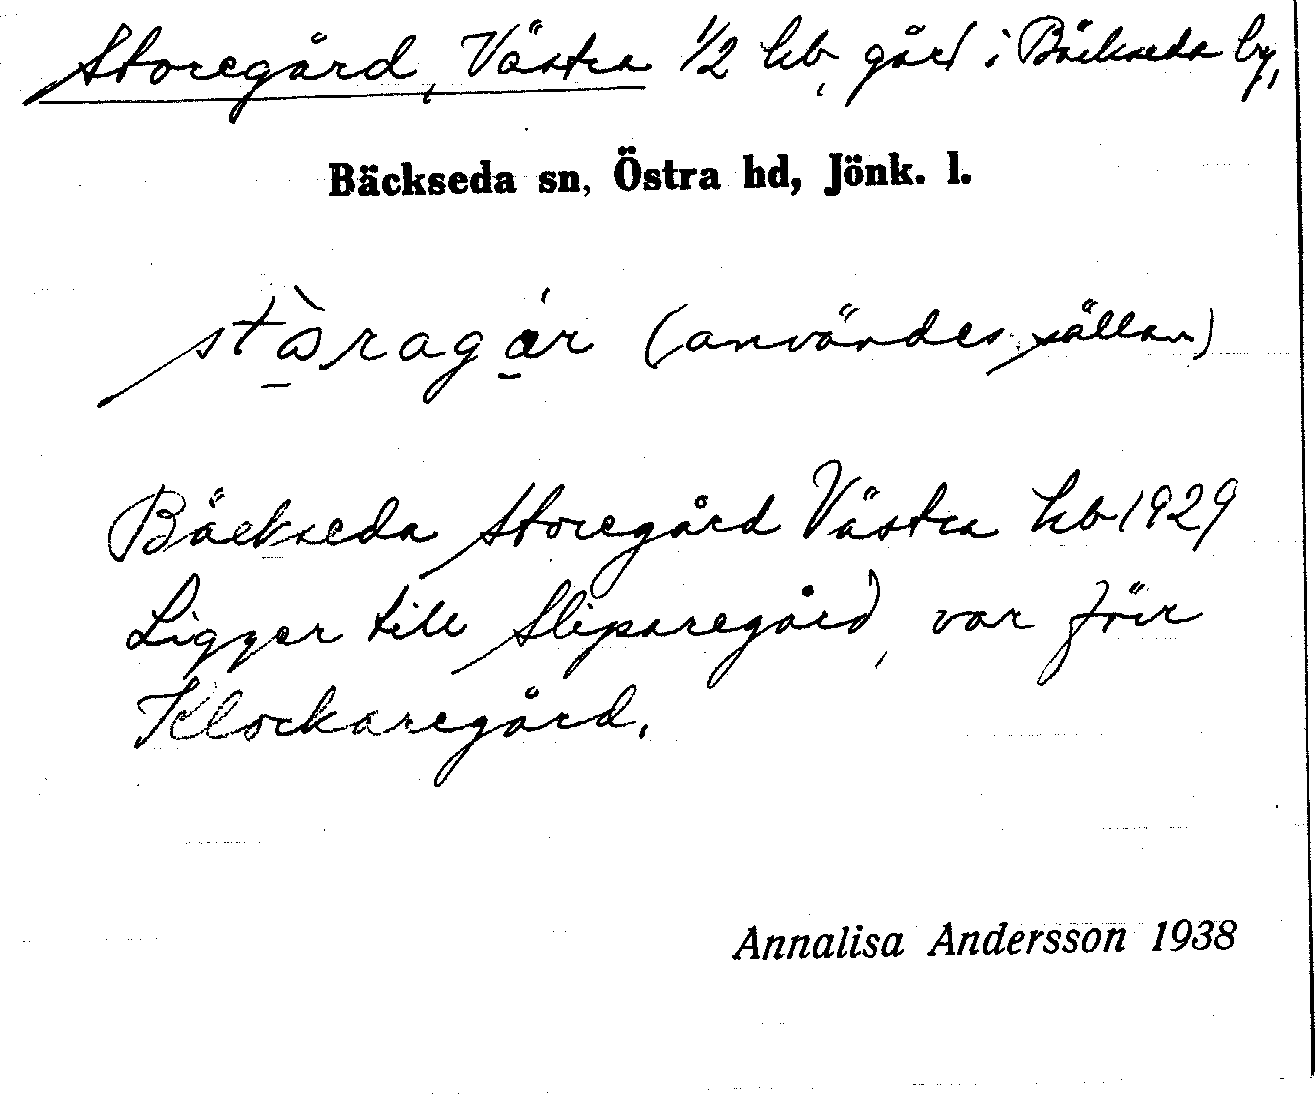 Storegård, Västra 1/2 hb, gård i Bäckseda by,
Bäckseda sn, Östra hd, Jönk. l.
(användes sällan)
Bäckseda Storegård Västra hb 1929
Ligger till Sliparegård, var förr
Klockaregård.
Annalisa Andersson 1938